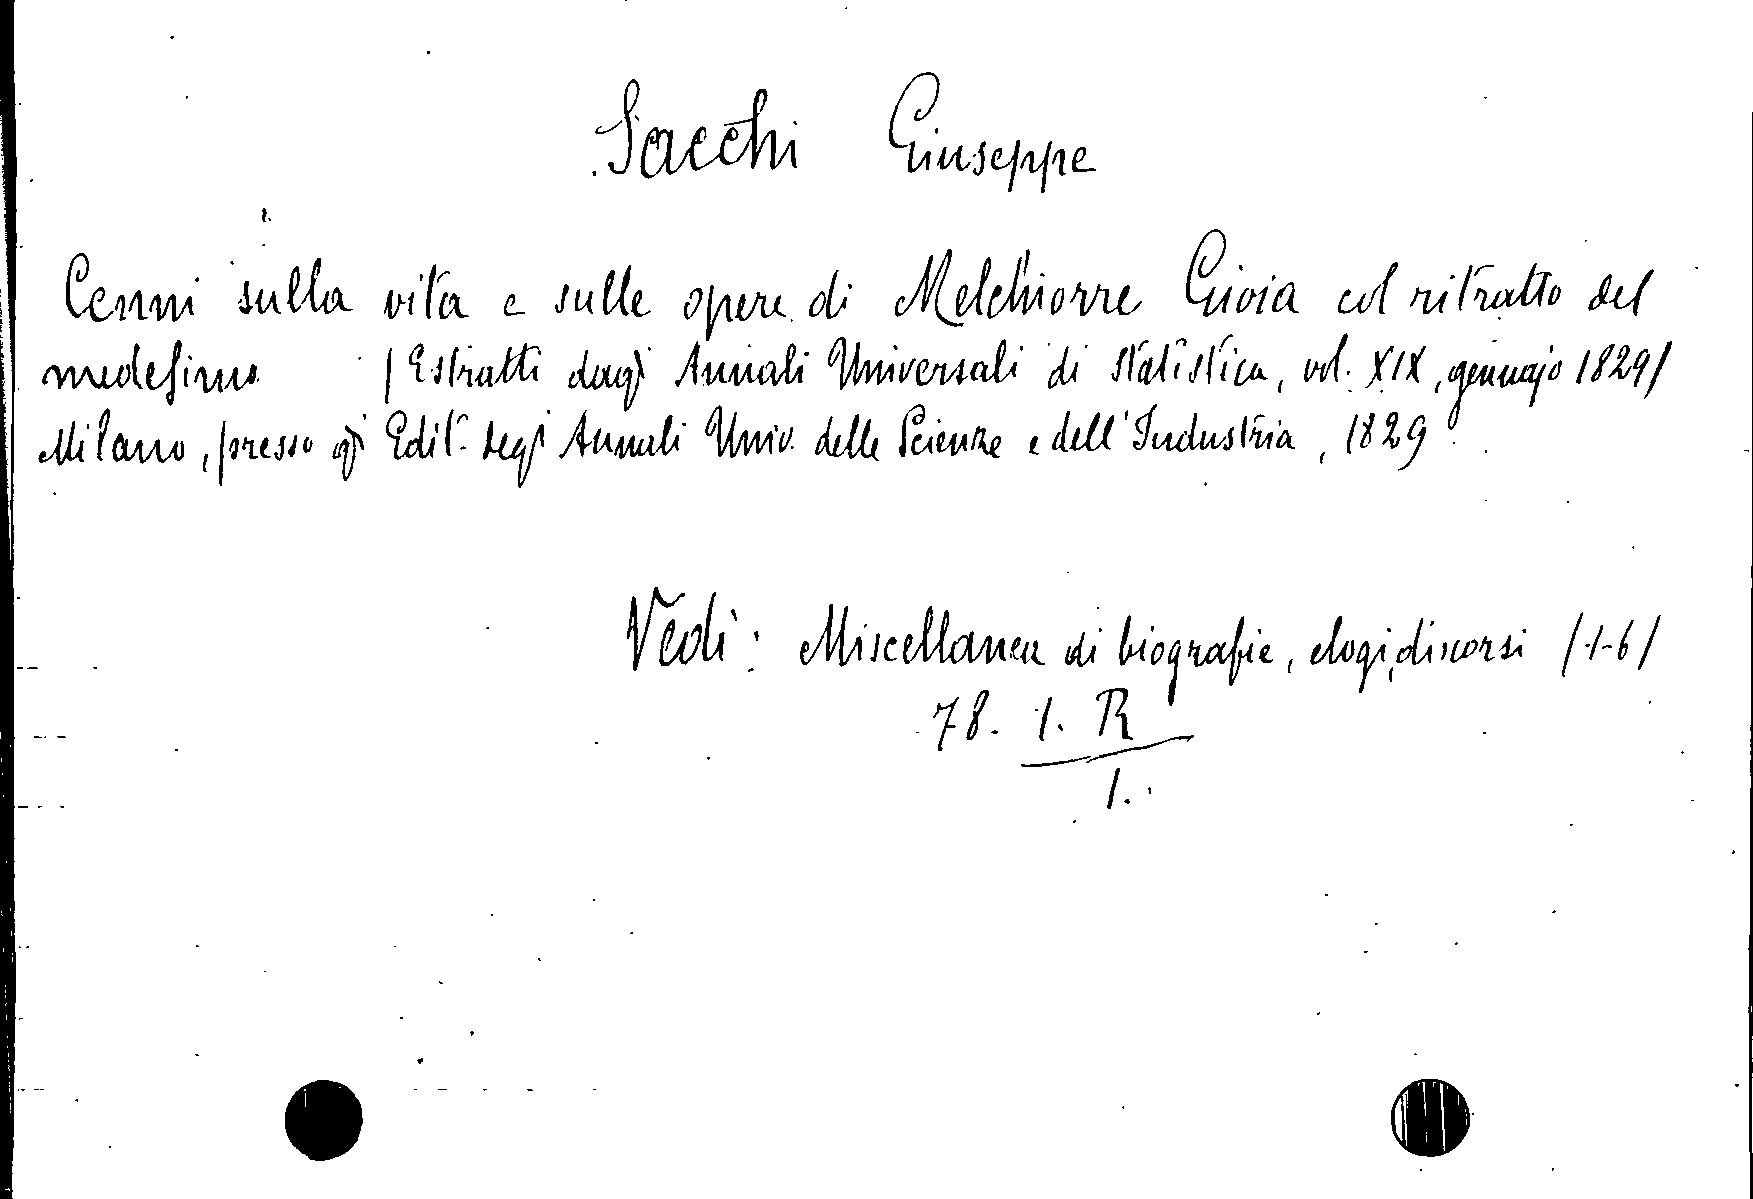 Sacchi Giuseppe
Cenni sulla vita e sulle opere di Melchiorre Gioia col ritratto del
medesimo /Estratti dagj Annali Universali di statistica, vol. XIX, gennajo 1829/
Milano, presso gj Edit. degj Annali Univ. delle Scienze e dell'Industria, 1829.
Vedi: Miscellanea di biografie, elogi, discorsi /1-6/
78. 1. R
1.